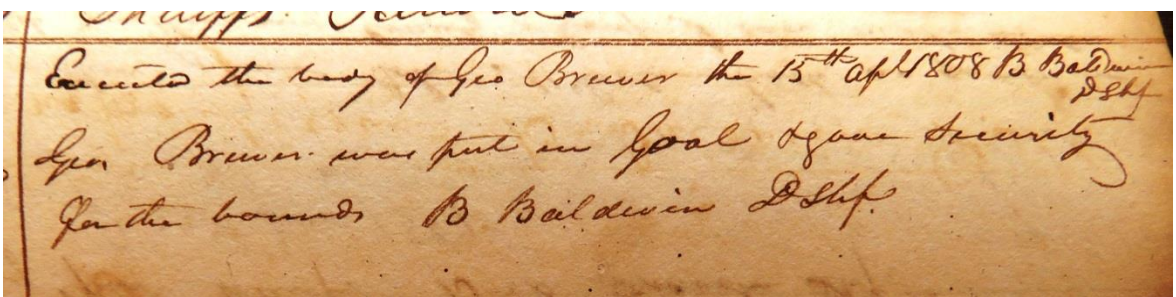 Sheriffs Returns
Executed the body of Geo Brewer the 15th apl 1808 B Baldwin
D Shf
Geo Brewer was put in Goal & gave Security
for the bounds B Baldwin D Shf.